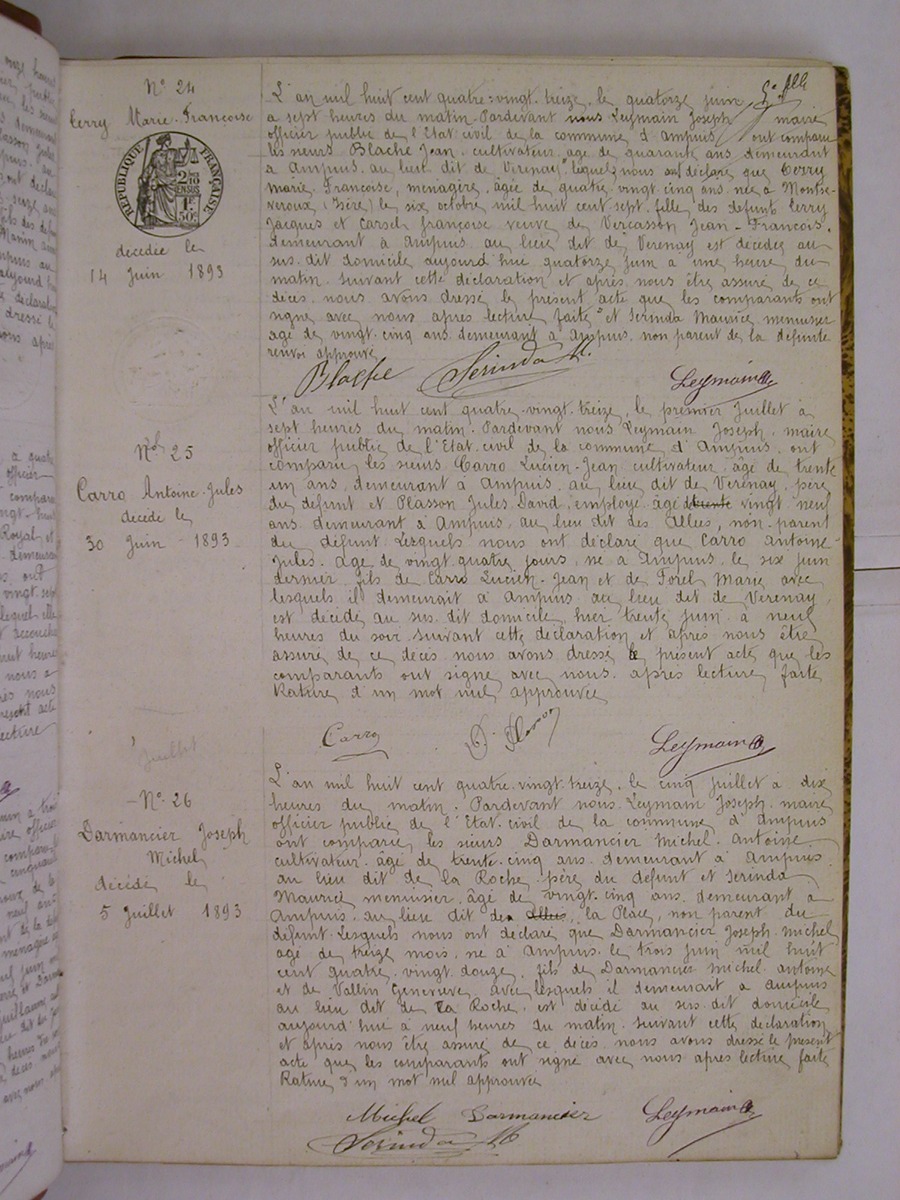 N° 24
Cerry Marie-Françoise
RÉPUBLIQUE FRANÇAISE
décédée le
14 Juin 1893
L'an mil huit cent quatre-vingt-treize, le quatorze juin
a sept heures du matin. Pardevant nous Leymain Joseph maire
officier public de l'Etat civil de la commune d'Ampuis ont comparu
les sieurs Blache Jean, cultivateur, âgé de quarante ans demeurant
à Ampuis au lieu dit de Verenay lesquels nous ont déclaré que Cerry
Marie-Francoise, menagère, âgée de quatre vingt cinq ans née à Montse-
veroux (Isère) le six octobre mil huit cent sept, fille des defunts Cerry
Jacques et Carsel françoise veuve de Vercasson Jean-Francois,
demeurant à Ampuis au lieu dit de Verenay est décédée au
sus. dit domicile aujourd'hui quatorze juin à une heure du
matin. Suivant cette déclaration et après nous être assuré de ce
décès, nous avons dressé le présent acte que les comparants ont
signé avec nous après lecture faite et Serinda Maurice, menuisier
age de vingt-cinq ans demeurant à Ampuis, non parent de la défunte
renvoi approuvé
Blache Serinda M. Leymain
N° 25
Carro Antoine-Jules
décédé le
30 Juin 1893
L'an mil huit cent quatre-vingt-treize, le premier Juillet à
sept heures du matin. Pardevant nous Leymain Joseph, maire
officier public de l'Etat-civil de la commune d'Ampuis, ont
comparu les sieurs Carro Lucien-Jean cultivateur, âgé de trente
un ans, demeurant à Ampuis, au lieu dit de Verenay, père
du défunt et Plasson Jules David, employé, âgé de trente vingt neuf
ans demeurant à Ampuis, au lieu dit des Allées, non-parent
du défunt. Lesquels nous ont déclaré que Carro Antoine-
Jules, âgé de vingt-quatre jours, né à Ampuis, le six juin
dernier, fils de Carro Lucien-Jean et de Forel Marie avec
lesquels il demeurait à Ampuis au lieu dit de Verenay
est décédé au sus. dit domicile, hier trente juin à neuf
heures du soir. Suivant cette déclaration et après nous être
assuré de ce décès nous avons dressé le présent acte que les
comparants ont signé avec nous, après lecture faite
Rature d'un mot nul approuvée
Carro Leymain
Juillet
N° 26
Darmancier Joseph
Michel
décédé le
5 Juillet 1893
L'an mil huit cent quatre-vingt-treize, le cinq juillet à dix
heures du matin. Pardevant nous Leymain Joseph maire
officier public de l'Etat-civil de la commune d'Ampuis
ont comparu, les sieurs Darmancier Michel-Antoine
cultivateur, âgé de trente-cinq ans demeurant à Ampuis
au lieu dit de la Roche père du défunt et Serinda
Maurice menuisier, âgé de vingt-cinq ans demeurant à
Ampuis, au lieu dit des Allées, la Place, non parent du
défunt. Lesquels nous ont déclaré que Darmancier Joseph-Michel
âgé de treize mois, né à Ampuis, le trois juin mil huit
cent quatre-vingt douze, fils de Darmancier Michel-antoine
et de Vallin Geneviève avec lesquels il demeurait à Ampuis
au lieu dit de la Roche, est décédé au sus. dit domicile
aujourd'hui à neuf heures du matin. Suivant cette declaration
et après nous être assuré de ce décès nous avons dressé le présent
acte que les comparants ont signé avec nous après lecture faite
Rature d'un mot nul approuvée
Michel Darmancier Leymain
Serinda M